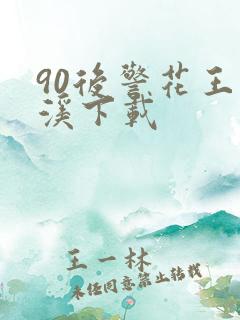 90後警花王
溪下載
王一林
未经同意禁止转载